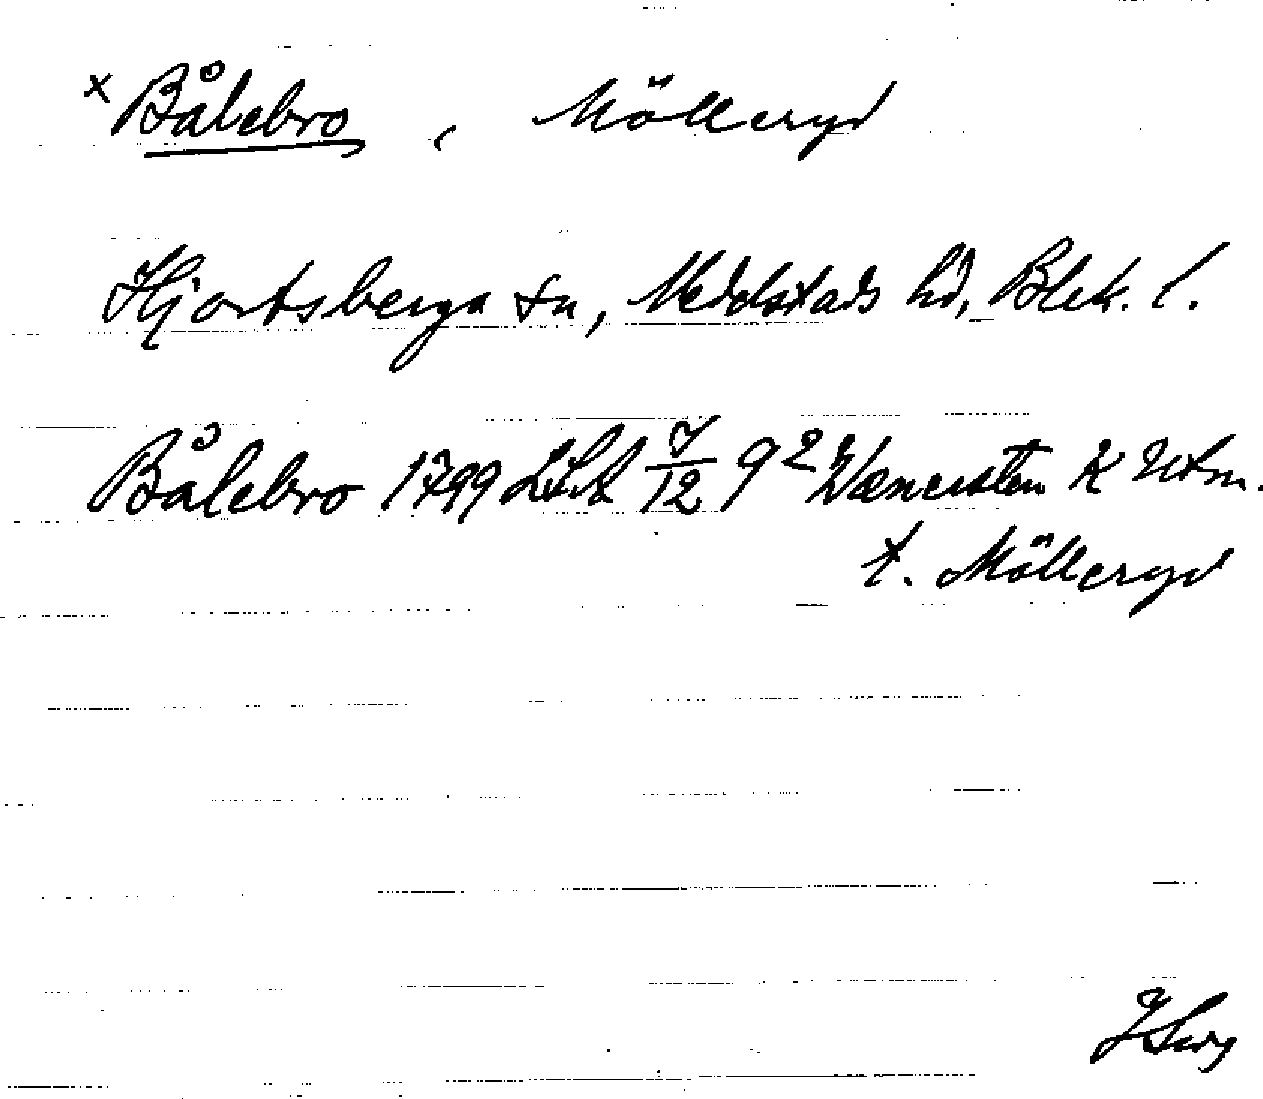 x Bålebro, Mölleryd
Hjortsberga sn, Medelstads hd, Blek. l.
Bålebro 1799 LSA 7/12 9² Wænersten K Utm.
t. Mölleryd